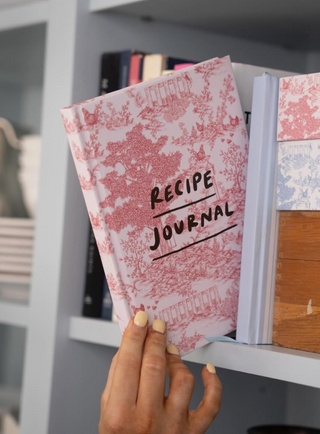 RECIPE
JOURNAL